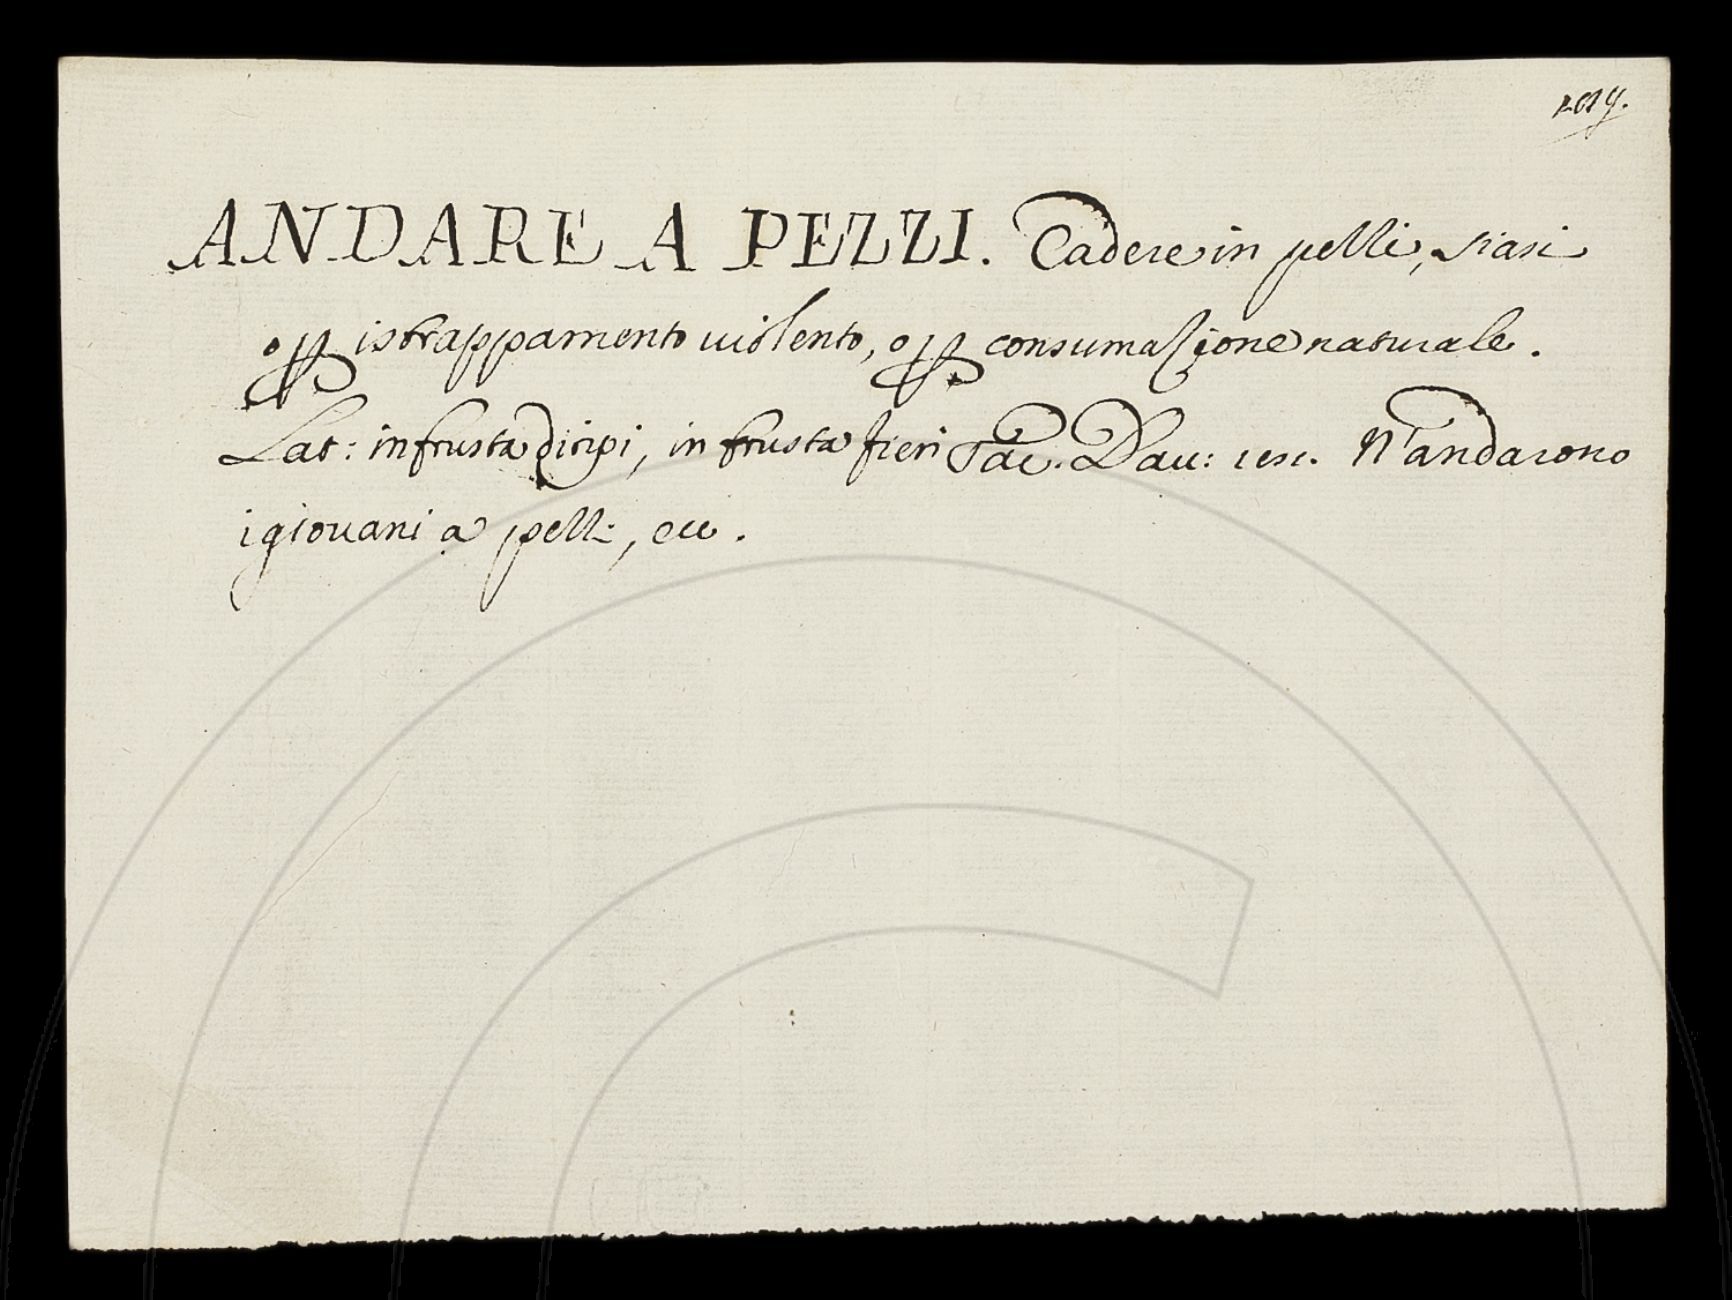 ANDARE A PEZZI. Cadere in pezzi, siasi
o p istrappamento uiolento, o p consumazione naturale.
Lat: in frusta dicipi, in frusta fieri Tac. Dau: N'andarono
i giouani a pezzi, ecc.